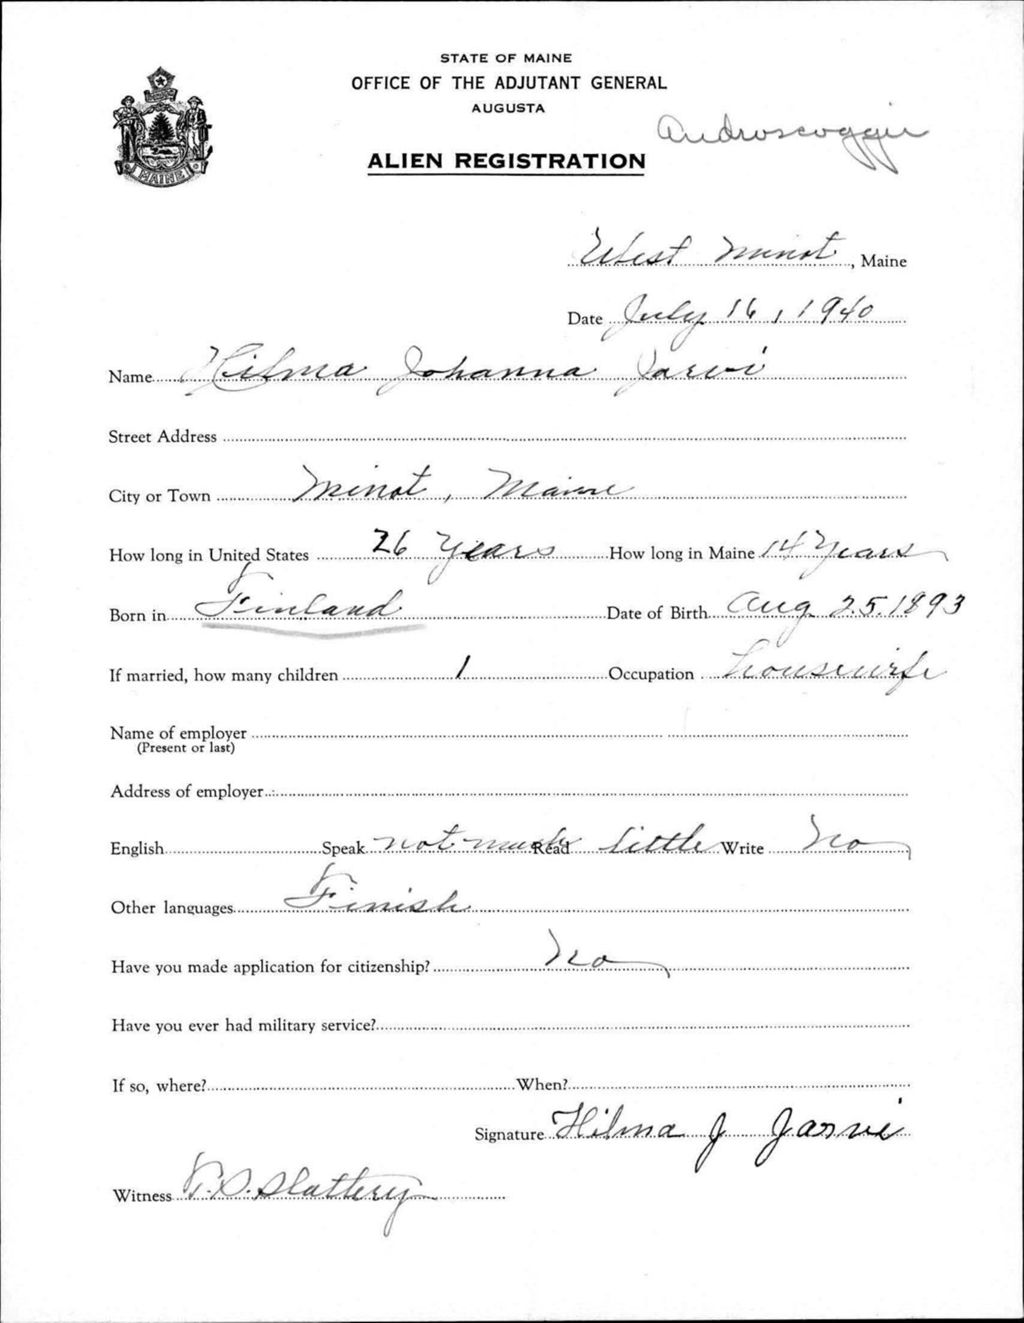 STATE OF MAINE
OFFICE OF THE ADJUTANT GENERAL
AUGUSTA
Androscoggin
ALIEN REGISTRATION
MAINE
West Minot, Maine
Date July 16, 1940
Name Hilma Johanna Jarvi
Street Address
City or Town Minot, Maine
How long in United States 26 Years How long in Maine 14 Years
Born in Finland Date of Birth Aug 25. 1893
If married, how many children 1 Occupation housewife
Name of employer
(Present or last)
Address of employer
English Speak not much Read little Write No
Other languages Finish
Have you made application for citizenship? No
Have you ever had military service?
If so, where? When?
Signature Hilma J Jarvi
Witness Slattery